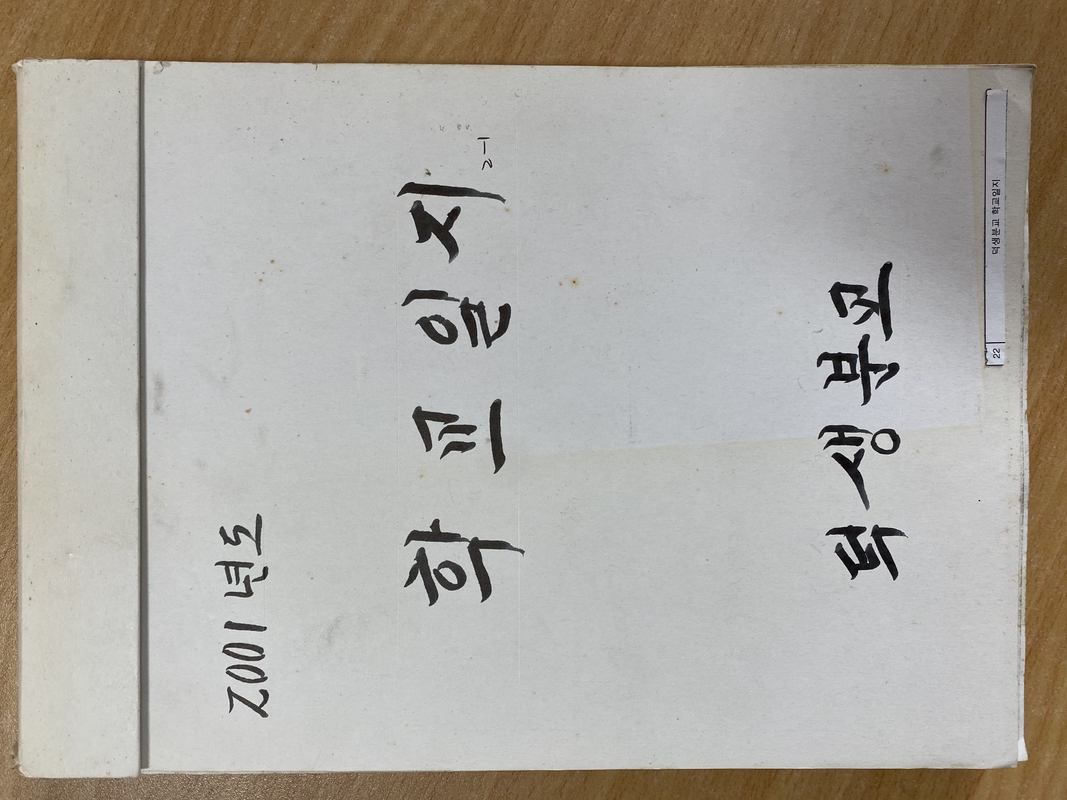 2001 년도
학 교 일 지 2-1
덕 생 분 교
22 덕생분교 학교일지